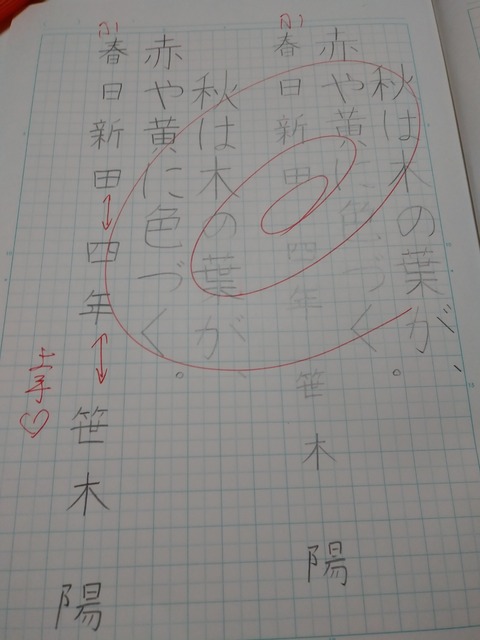 秋は木の葉が、
赤や黄に色づく。
春日新田四年笹木陽
秋は木の葉が、
赤や黄に色づく。
春日新田 四年 笹木陽
上手♡